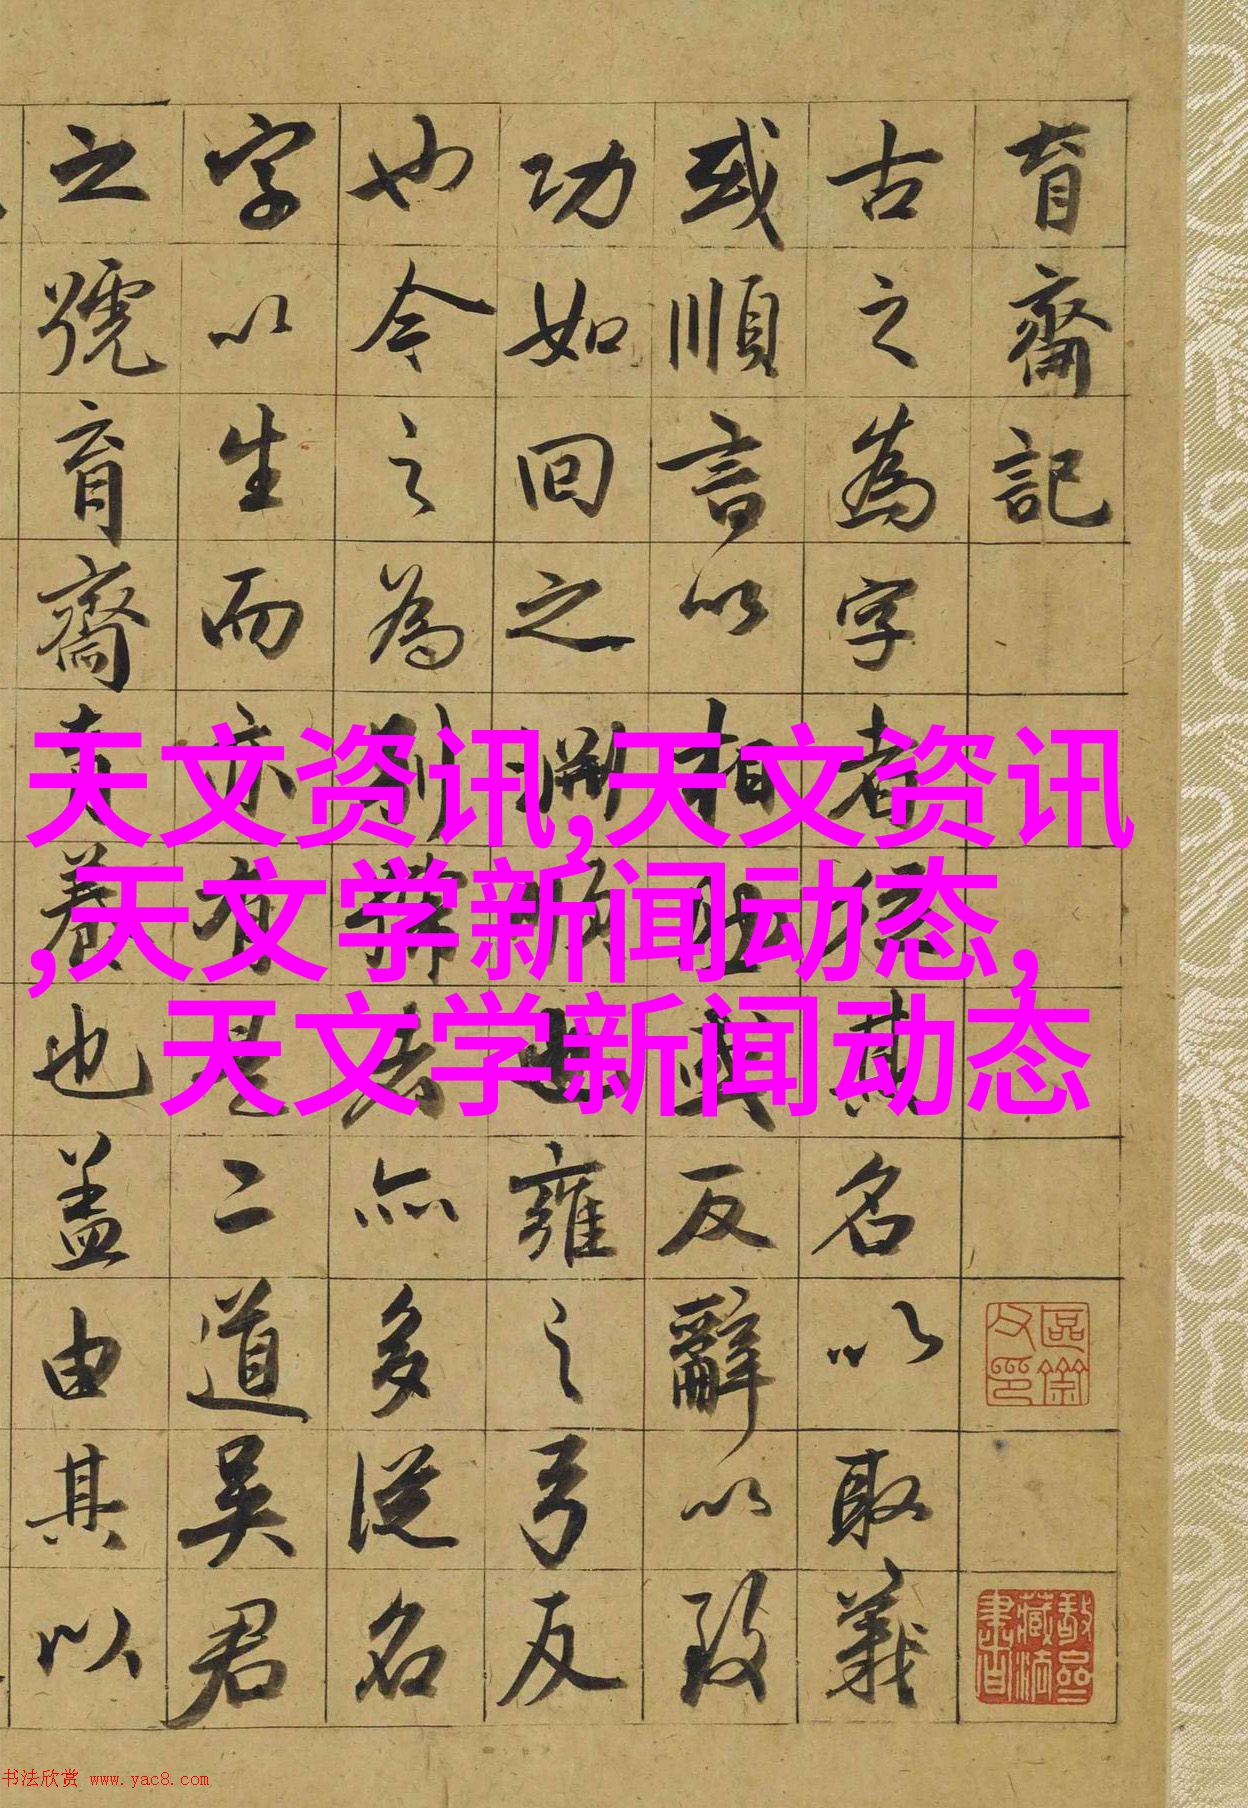 育齋記
古之為字者其名以取義
或順言以相或反辭以致
功如回之淵也雍之弓反
也今之為別號者亦多從名
字以生而亦有是二道吳君
之號育齋育養也蓋由其以
天文资讯,天文资讯
,天文学新闻动态,
天文学新闻动态
书法欣赏 www.yac8.com